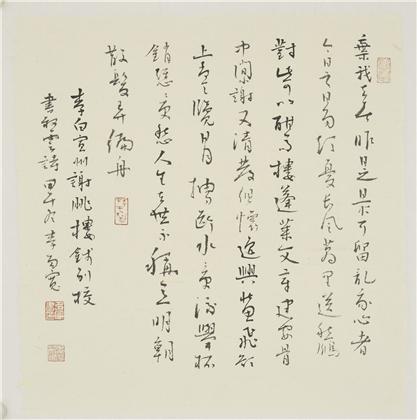 棄我去者昨日之日不可留亂我心者
今日之日多煩憂長風萬里送秋雁
對此可以酣高樓蓬萊文章建安骨
中間小謝又清發俱懷逸興壯思飛欲
上青天覽日月抽刀斷水水更流舉杯
銷愁愁更愁人生在世不稱意明朝
散髮弄扁舟
李白宣州謝朓樓餞別校
書叔雲詩甲午